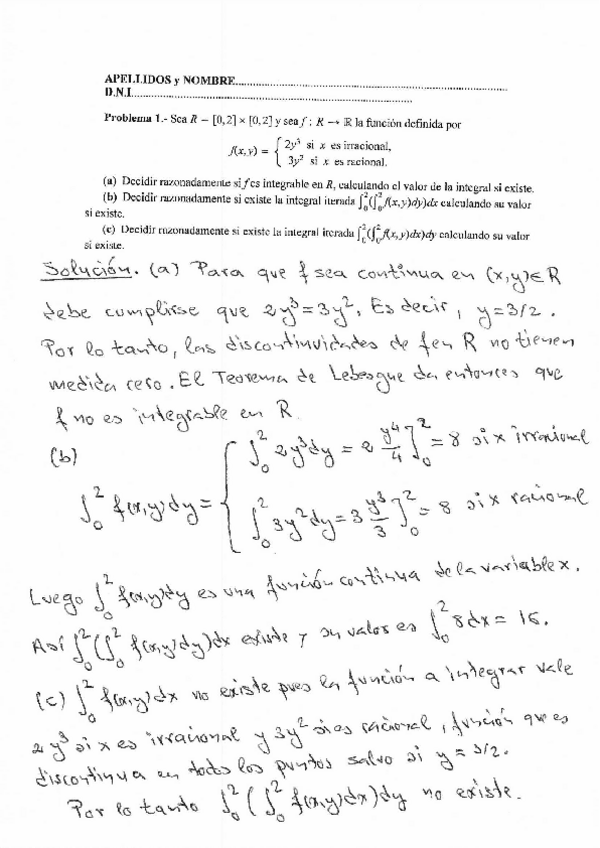 APELLIDOS y NOMBRE................................................
D.N.I................................................
Problema 1.- Sea R = [0,2] × [0,2] y sea f : R → ℝ la función definida por
f(x,y) = { 2y³ si x es irracional,
3y² si x es racional.
(a) Decidir razonadamente si f es integrable en R, calculando el valor de la integral si existe.
(b) Decidir razonadamente si existe la integral iterada ∫₀²(∫₀² f(x,y)dy)dx calculando su valor
si existe.
(c) Decidir razonadamente si existe la integral iterada ∫₀²(∫₀² f(x,y)dx)dy calculando su valor
si existe.
Solución. (a) Para que f sea continua en (x,y)∈R
debe cumplirse que 2y³=3y². Es decir, y=3/2.
Por lo tanto, las discontinuidades de f en R no tienen
medida cero. El Teorema de Lebesgue da entonces que
f no es integrable en R.
(b)
∫₀² f(x,y)dy = { ∫₀² 2y³dy = 2 y⁴/4 ]₀² = 8 si x irracional
∫₀² 3y²dy = 3 y³/3 ]₀² = 8 si x racional
Luego ∫₀² f(x,y)dy es una función continua de la variable x.
Así ∫₀²(∫₀² f(x,y)dy)dx existe y su valor es ∫₀² 8dx = 16.
(c) ∫₀² f(x,y)dx no existe pues la función a integrar vale
2y³ si x es irracional y 3y² si es racional, función que es
discontinua en todos los puntos salvo si y = 3/2.
Por lo tanto ∫₀²(∫₀² f(x,y)dx)dy no existe.